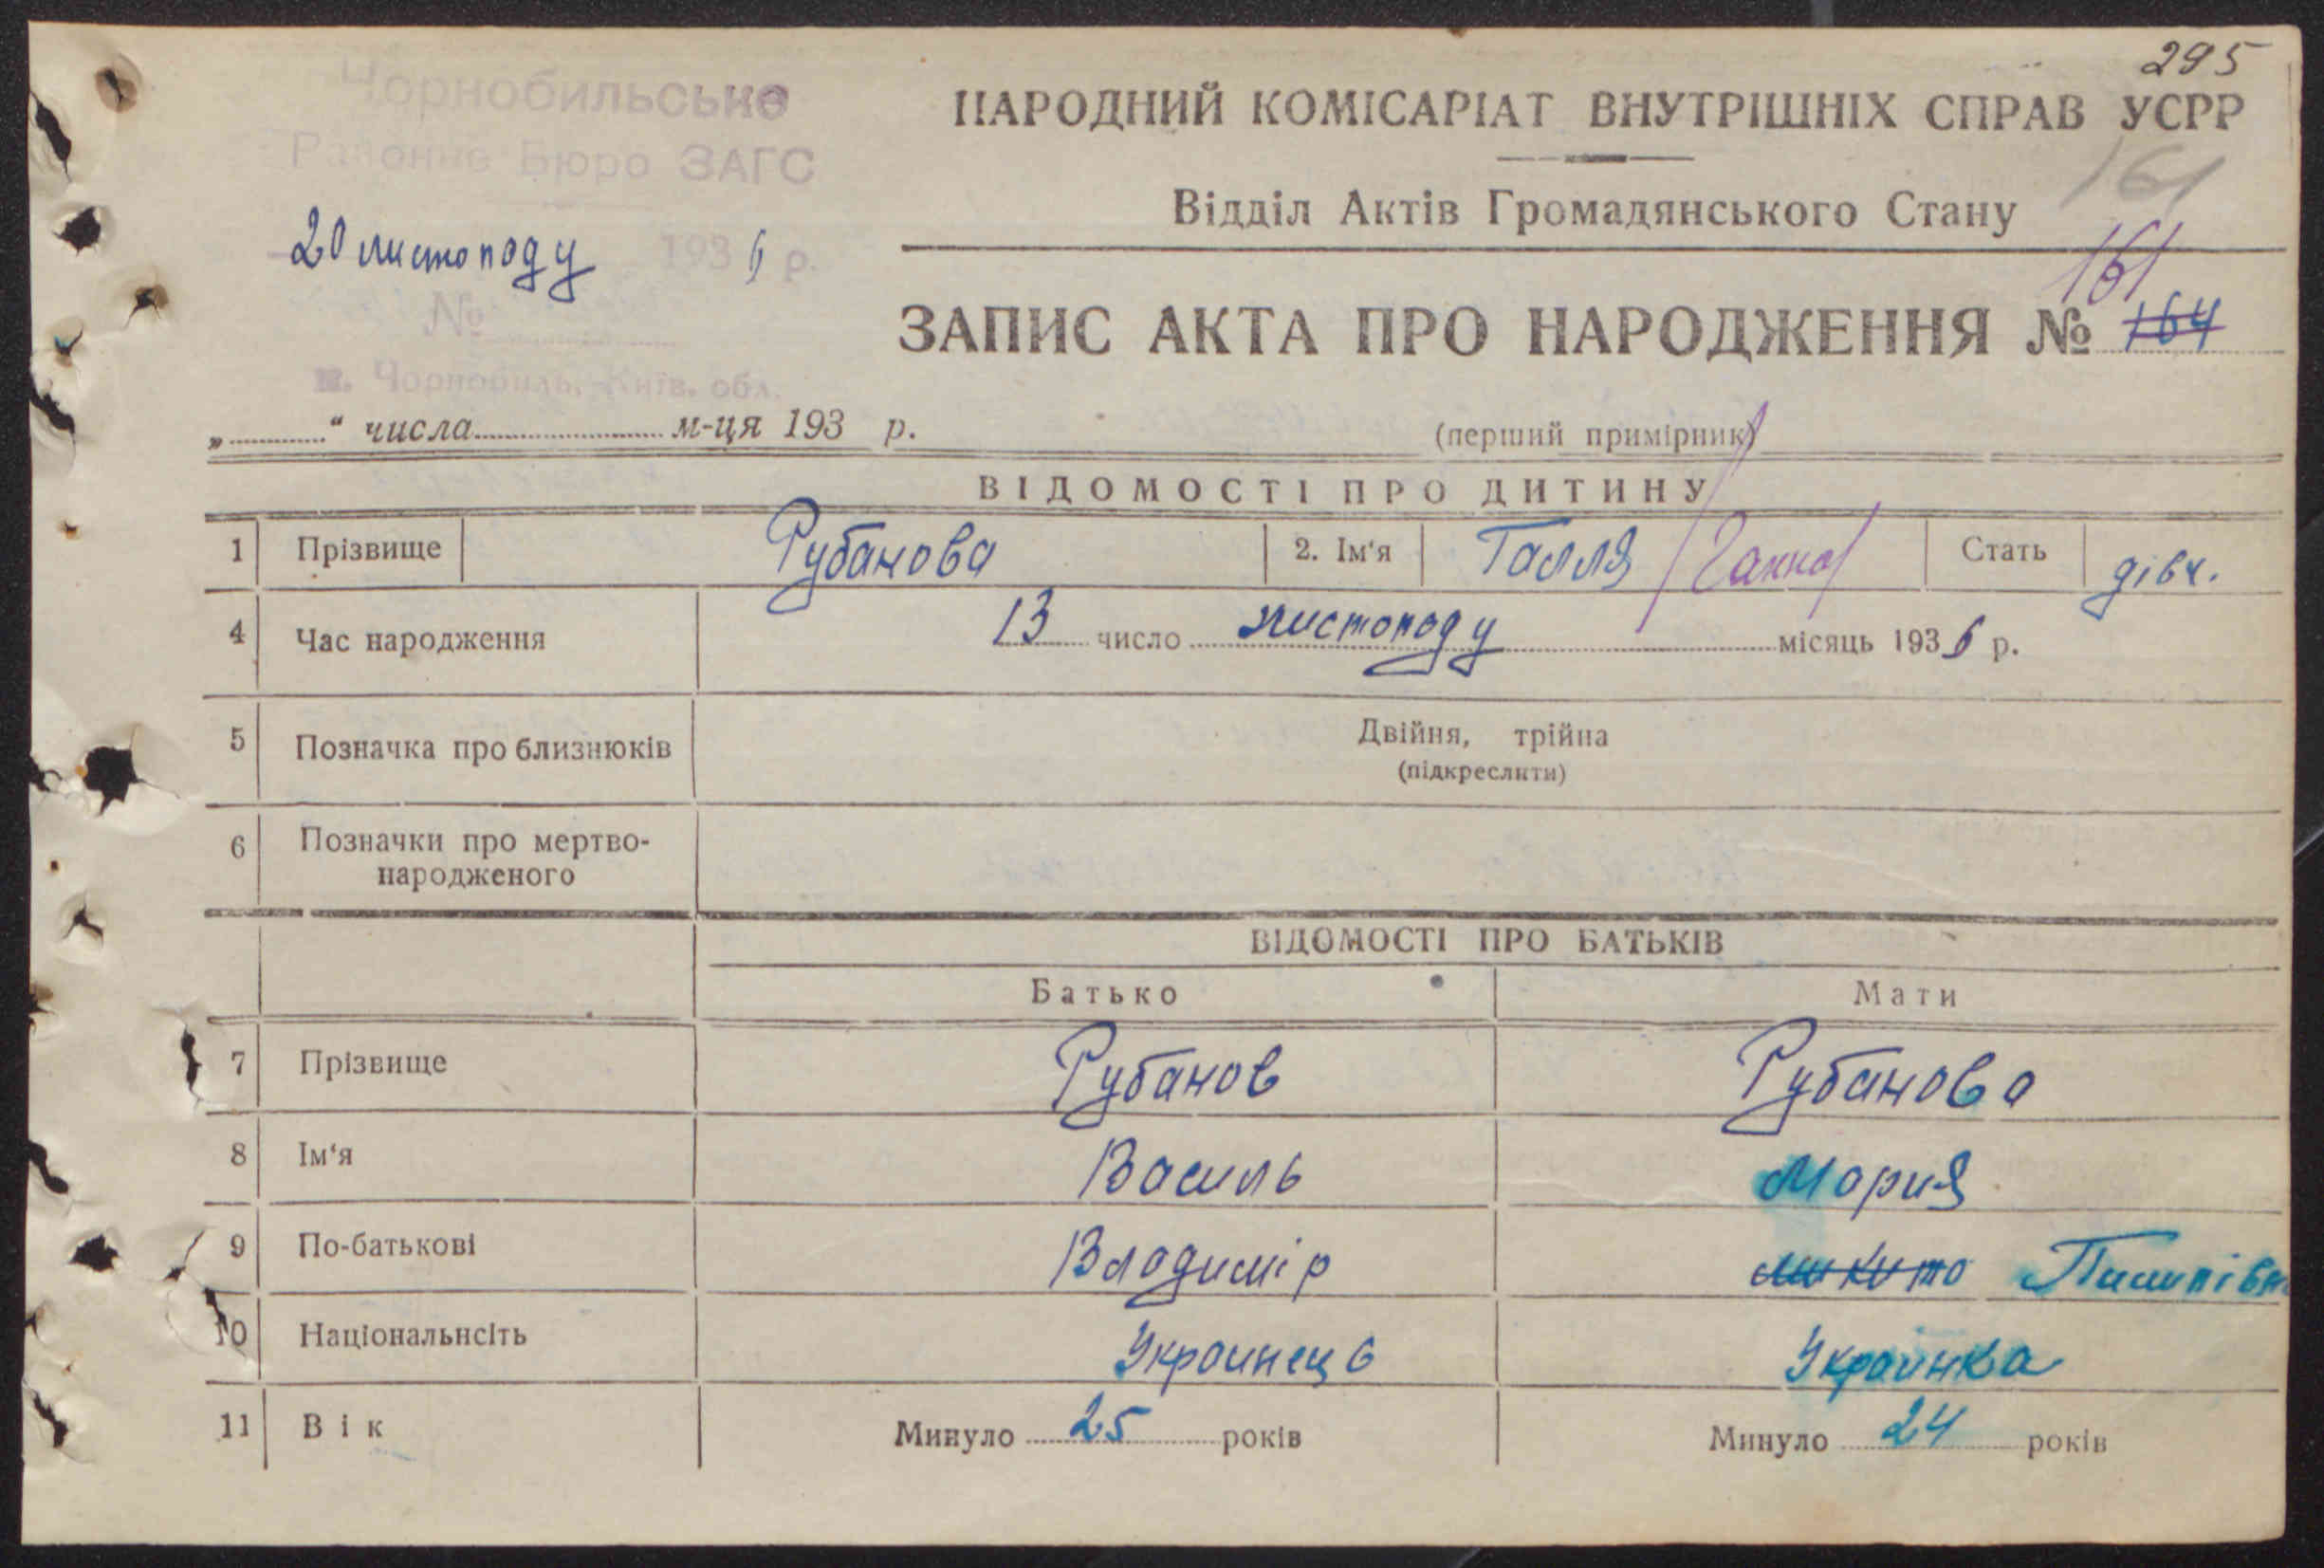 295
Чорнобильське
Районне Бюро ЗАГС
20 листопаду 1936 р.
№
м. Чорнобиль, Київ. обл.
НАРОДНИЙ КОМІСАРІАТ ВНУТРІШНІХ СПРАВ УСРР
161
Відділ Актів Громадянського Стану
161
ЗАПИС АКТА ПРО НАРОДЖЕННЯ № 164
„ “ числа м-ця 193 р.
(перший примірник)
ВІДОМОСТІ ПРО ДИТИНУ
1 Прізвище Рубанова 2. Ім'я Галля /Ганна/ Стать дівч.
4 Час народження 13 число листопаду місяць 1936 р.
5 Позначка про близнюків Двійня, трійна
(підкреслити)
6 Позначки про мертво-
народженого
ВІДОМОСТІ ПРО БАТЬКІВ
Батько Мати
7 Прізвище Рубанов Рубанова
8 Ім'я Василь Мария
9 По-батькові Владимір Микито Пилипівн
10 Національнсіть Украинець Украинка
11 Вік Минуло 25 років Минуло 24 років